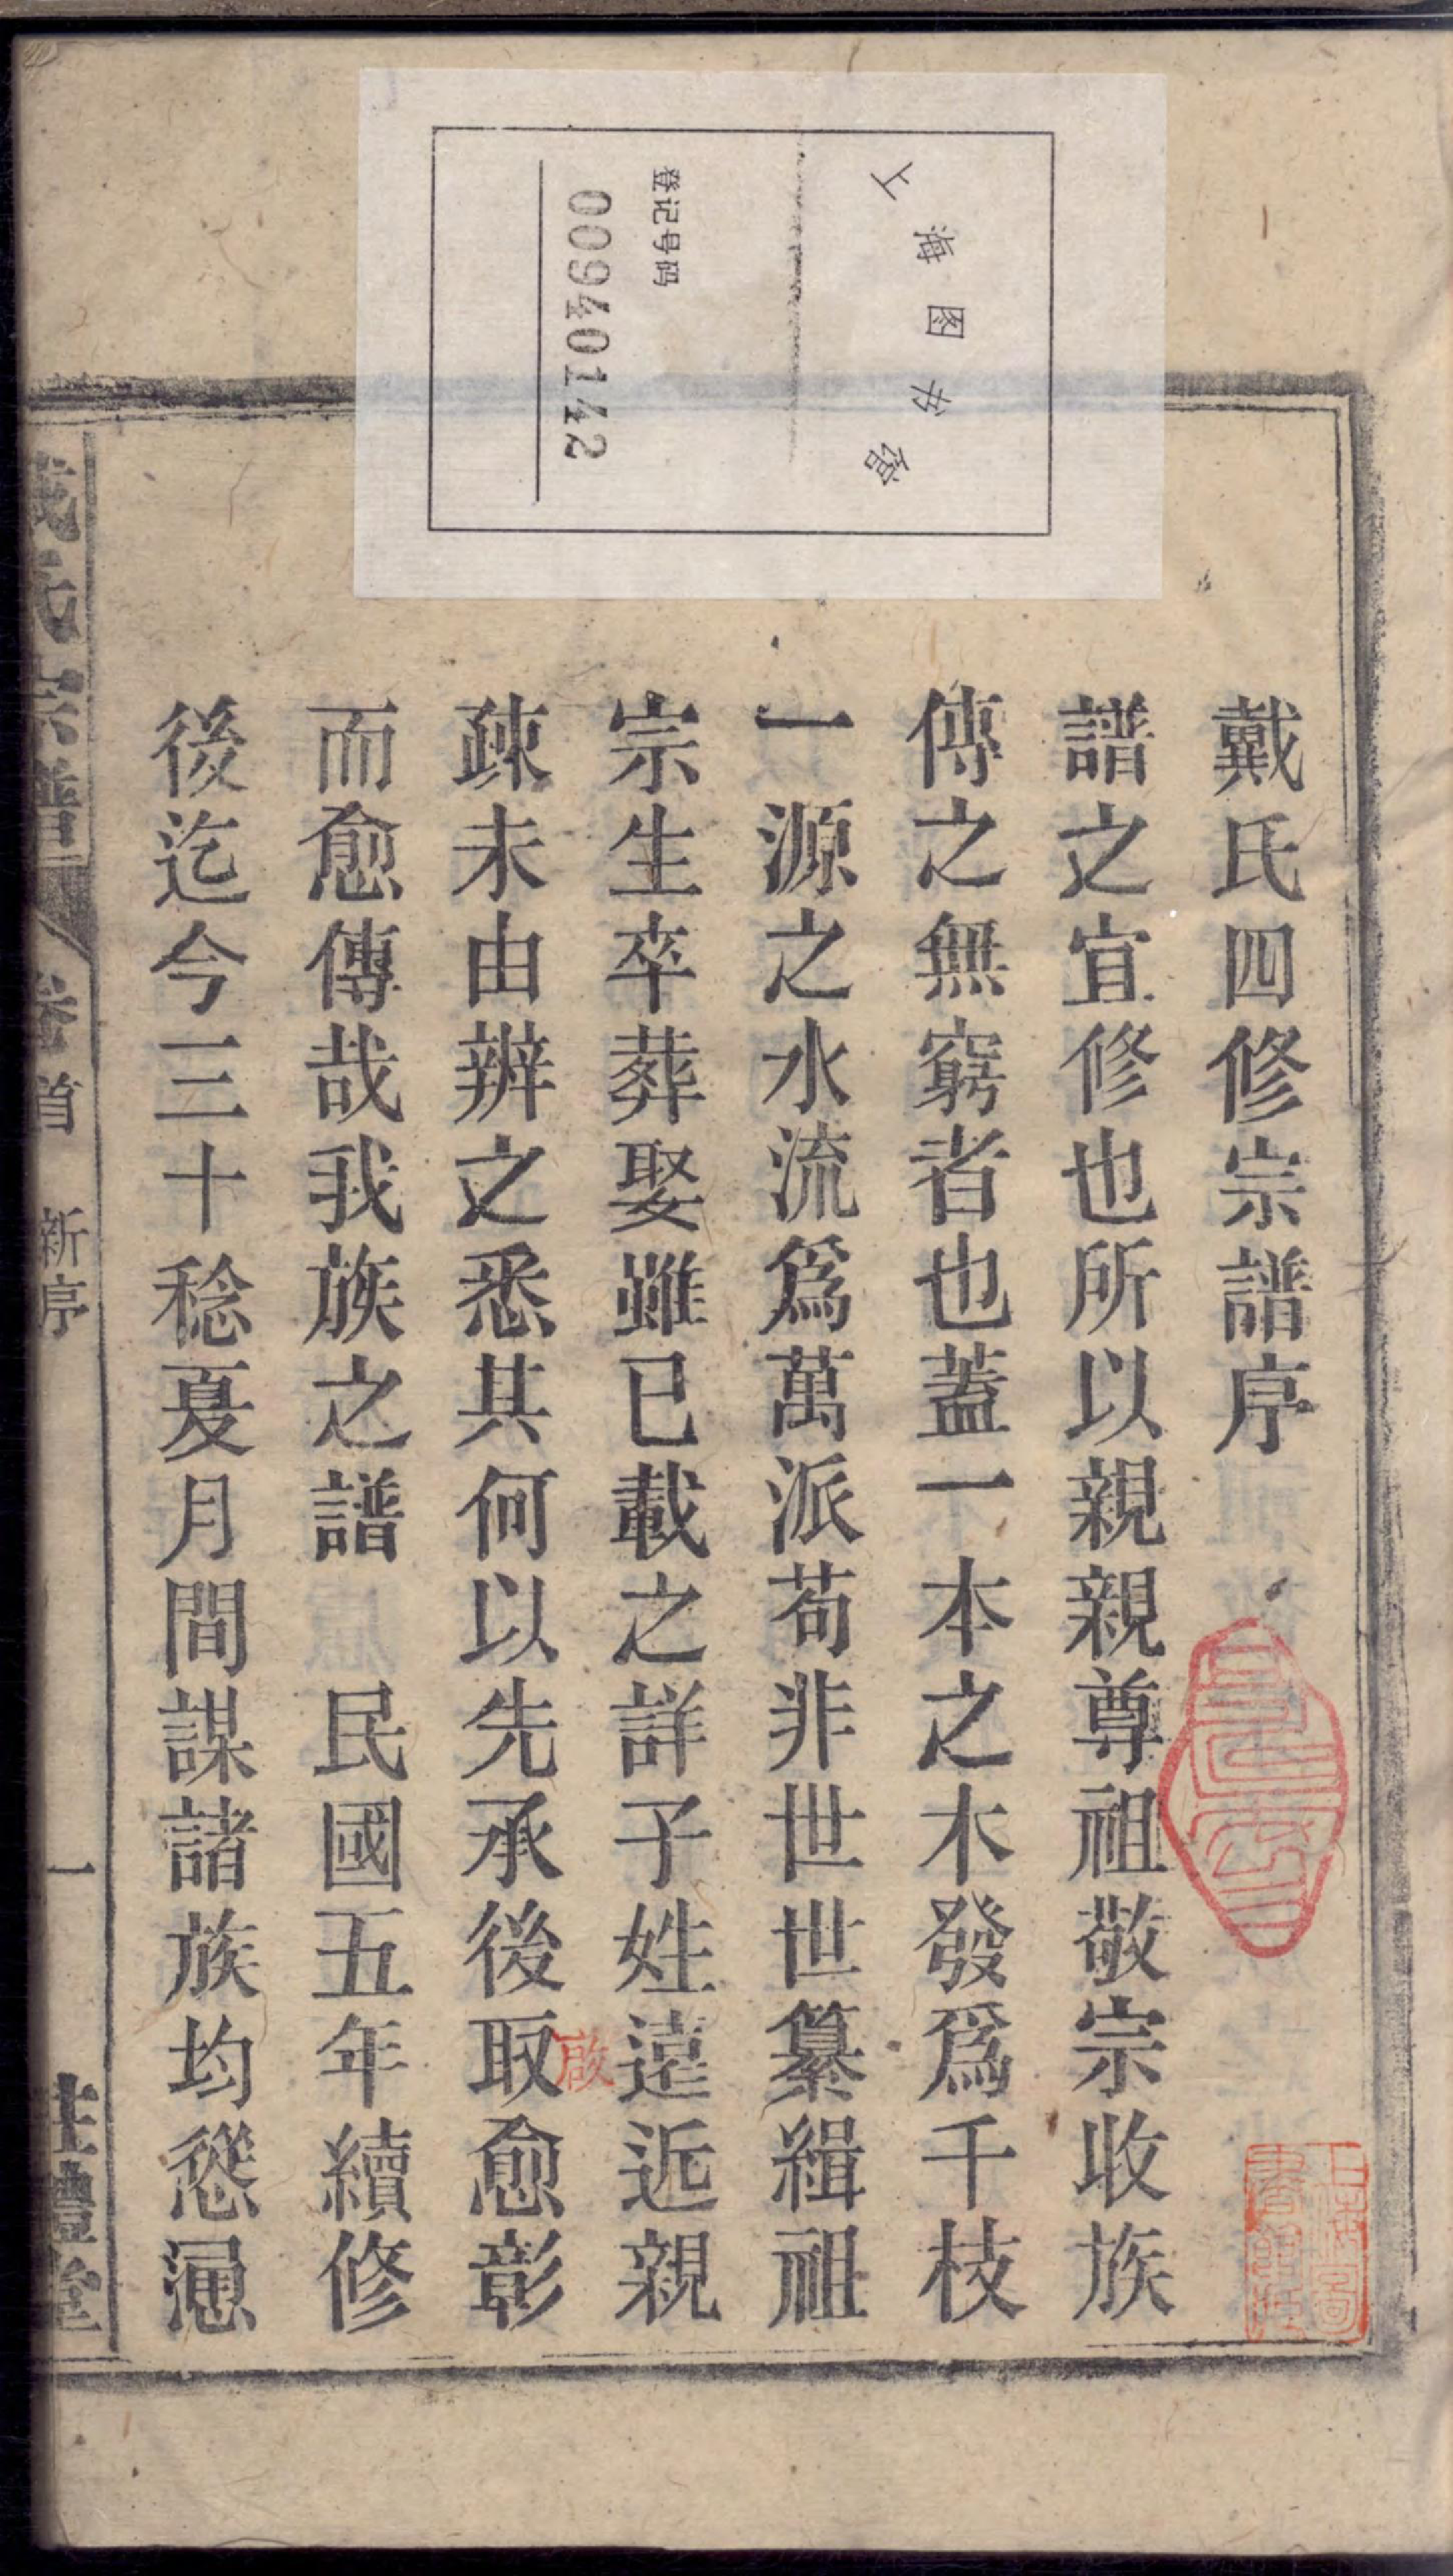 上海图书馆
登记号码
00940142
戴氏四修宗譜序
譜之宜修也所以親親尊祖敬宗收族
傳之無窮者也蓋一本之木發爲千枝
一源之水流爲萬派苟非世世纂緝祖
宗生卒葬娶雖已載之詳子姓遠近親
疎未由辨之悉其何以先承後取愈彰
啟
而愈傳哉我族之譜 民國五年續修
後迄今三十稔夏月間謀諸族均慫慂
戴氏宗譜
卷首 新序
一